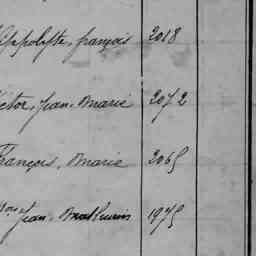 Hippolyte, françois 2018
Victor, Jean, Marie 2072
François, Marie 2065
Jean, Mathurin 1975